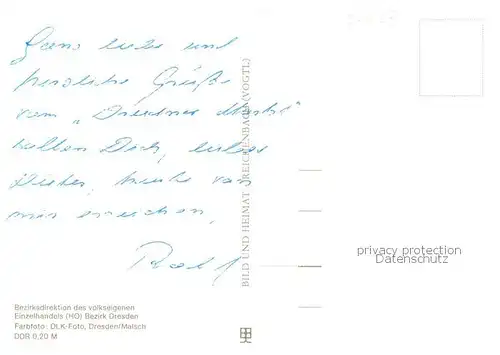 Ganz liebe und
herzliche Grüße
vom „Dresdner
sollen Dich, lieber
Dieter, heute von
mir erreichen.
Rolf
BILD UND HEIMAT REICHENBACH (VOGTL)
privacy protection
Datenschutz
Bezirksdirektion des volkseigenen
Einzelhandels (HO) Bezirk Dresden
Farbfoto: DLK-Foto, Dresden/Malsch
DDR 0,20 M